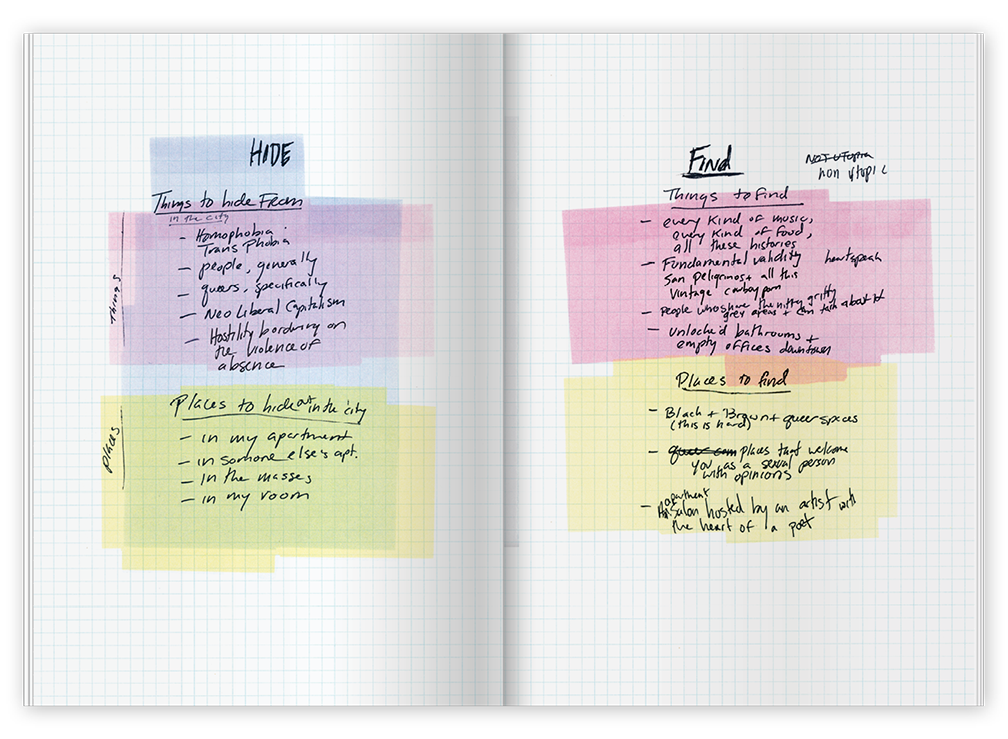 HIDE
Things to hide From
in the city
Things
- Homophobia
Trans Phobia
- people, generally
- queers, specifically
- Neo Liberal Capitalism
- Hostility bordring on
the violence of
absence
Places
Places to hide out in the city
- in my apartment
- in somone else's apt.
- in the masses
- in my room
Find
NOT UTOPIA
non utopic
Things to find
- every kind of music,
every kind of food,
all these histories
- Fundamental validity
heartspeak
San Peligrinos + all this
Vintage
- People who share the nitty gritty
grey areas + can talk about it
- unlocked bathrooms +
empty offices downtown
Places to find
- Black + Brown + queer spaces
(this is hard)
- places that welcome
you as a sexual person
with opinions
apartment
- salon hosted by an artist with
the heart of a poet